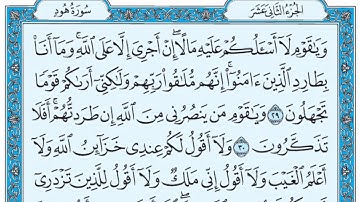 سُورَةُ هُودٍ الجُزْءُ الثَّانِي عَشَرَ
وَيَٰقَوْمِ لَآ أَسْـَٔلُكُمْ عَلَيْهِ مَالًا ۖ إِنْ أَجْرِىَ إِلَّا عَلَى ٱللَّهِ ۚ وَمَآ أَنَا۠
بِطَارِدِ ٱلَّذِينَ ءَامَنُوٓا۟ ۚ إِنَّهُم مُّلَٰقُوا۟ رَبِّهِمْ وَلَٰكِنِّىٓ أَرَىٰكُمْ قَوْمًا
تَجْهَلُونَ ٢٩ وَيَٰقَوْمِ مَن يَنصُرُنِى مِنَ ٱللَّهِ إِن طَرَدتُّهُمْ ۚ أَفَلَا
تَذَكَّرُونَ ٣٠ وَلَآ أَقُولُ لَكُمْ عِندِى خَزَآئِنُ ٱللَّهِ وَلَآ
أَعْلَمُ ٱلْغَيْبَ وَلَآ أَقُولُ إِنِّى مَلَكٌ وَلَآ أَقُولُ لِلَّذِينَ تَزْدَرِىٓ